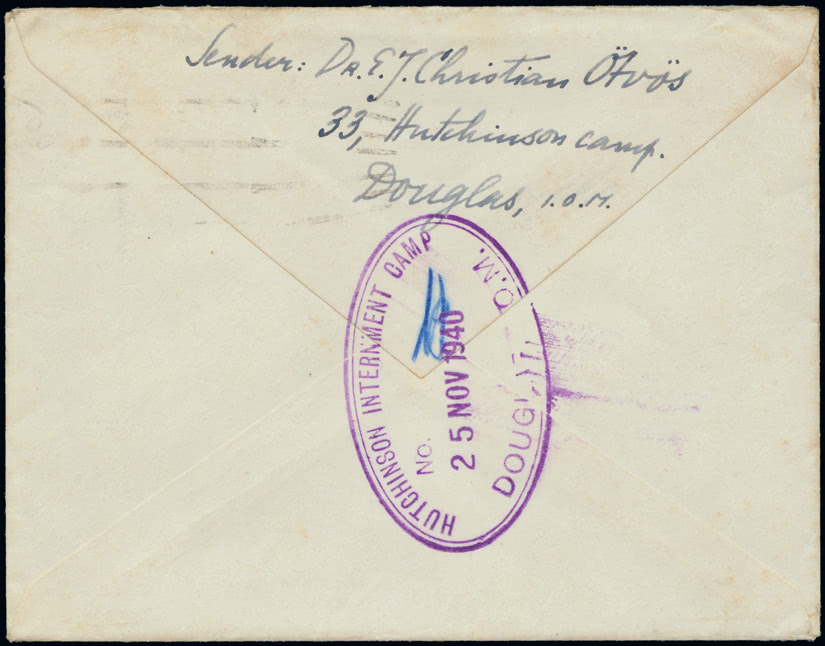 Sender: Dr. E. J. Christian Ötvös
33, Hutchinson camp.
Douglas, I.O.M.
HUTCHINSON INTERNMENT CAMP
NO.
25 NOV 1940
DOUGLAS O.M.